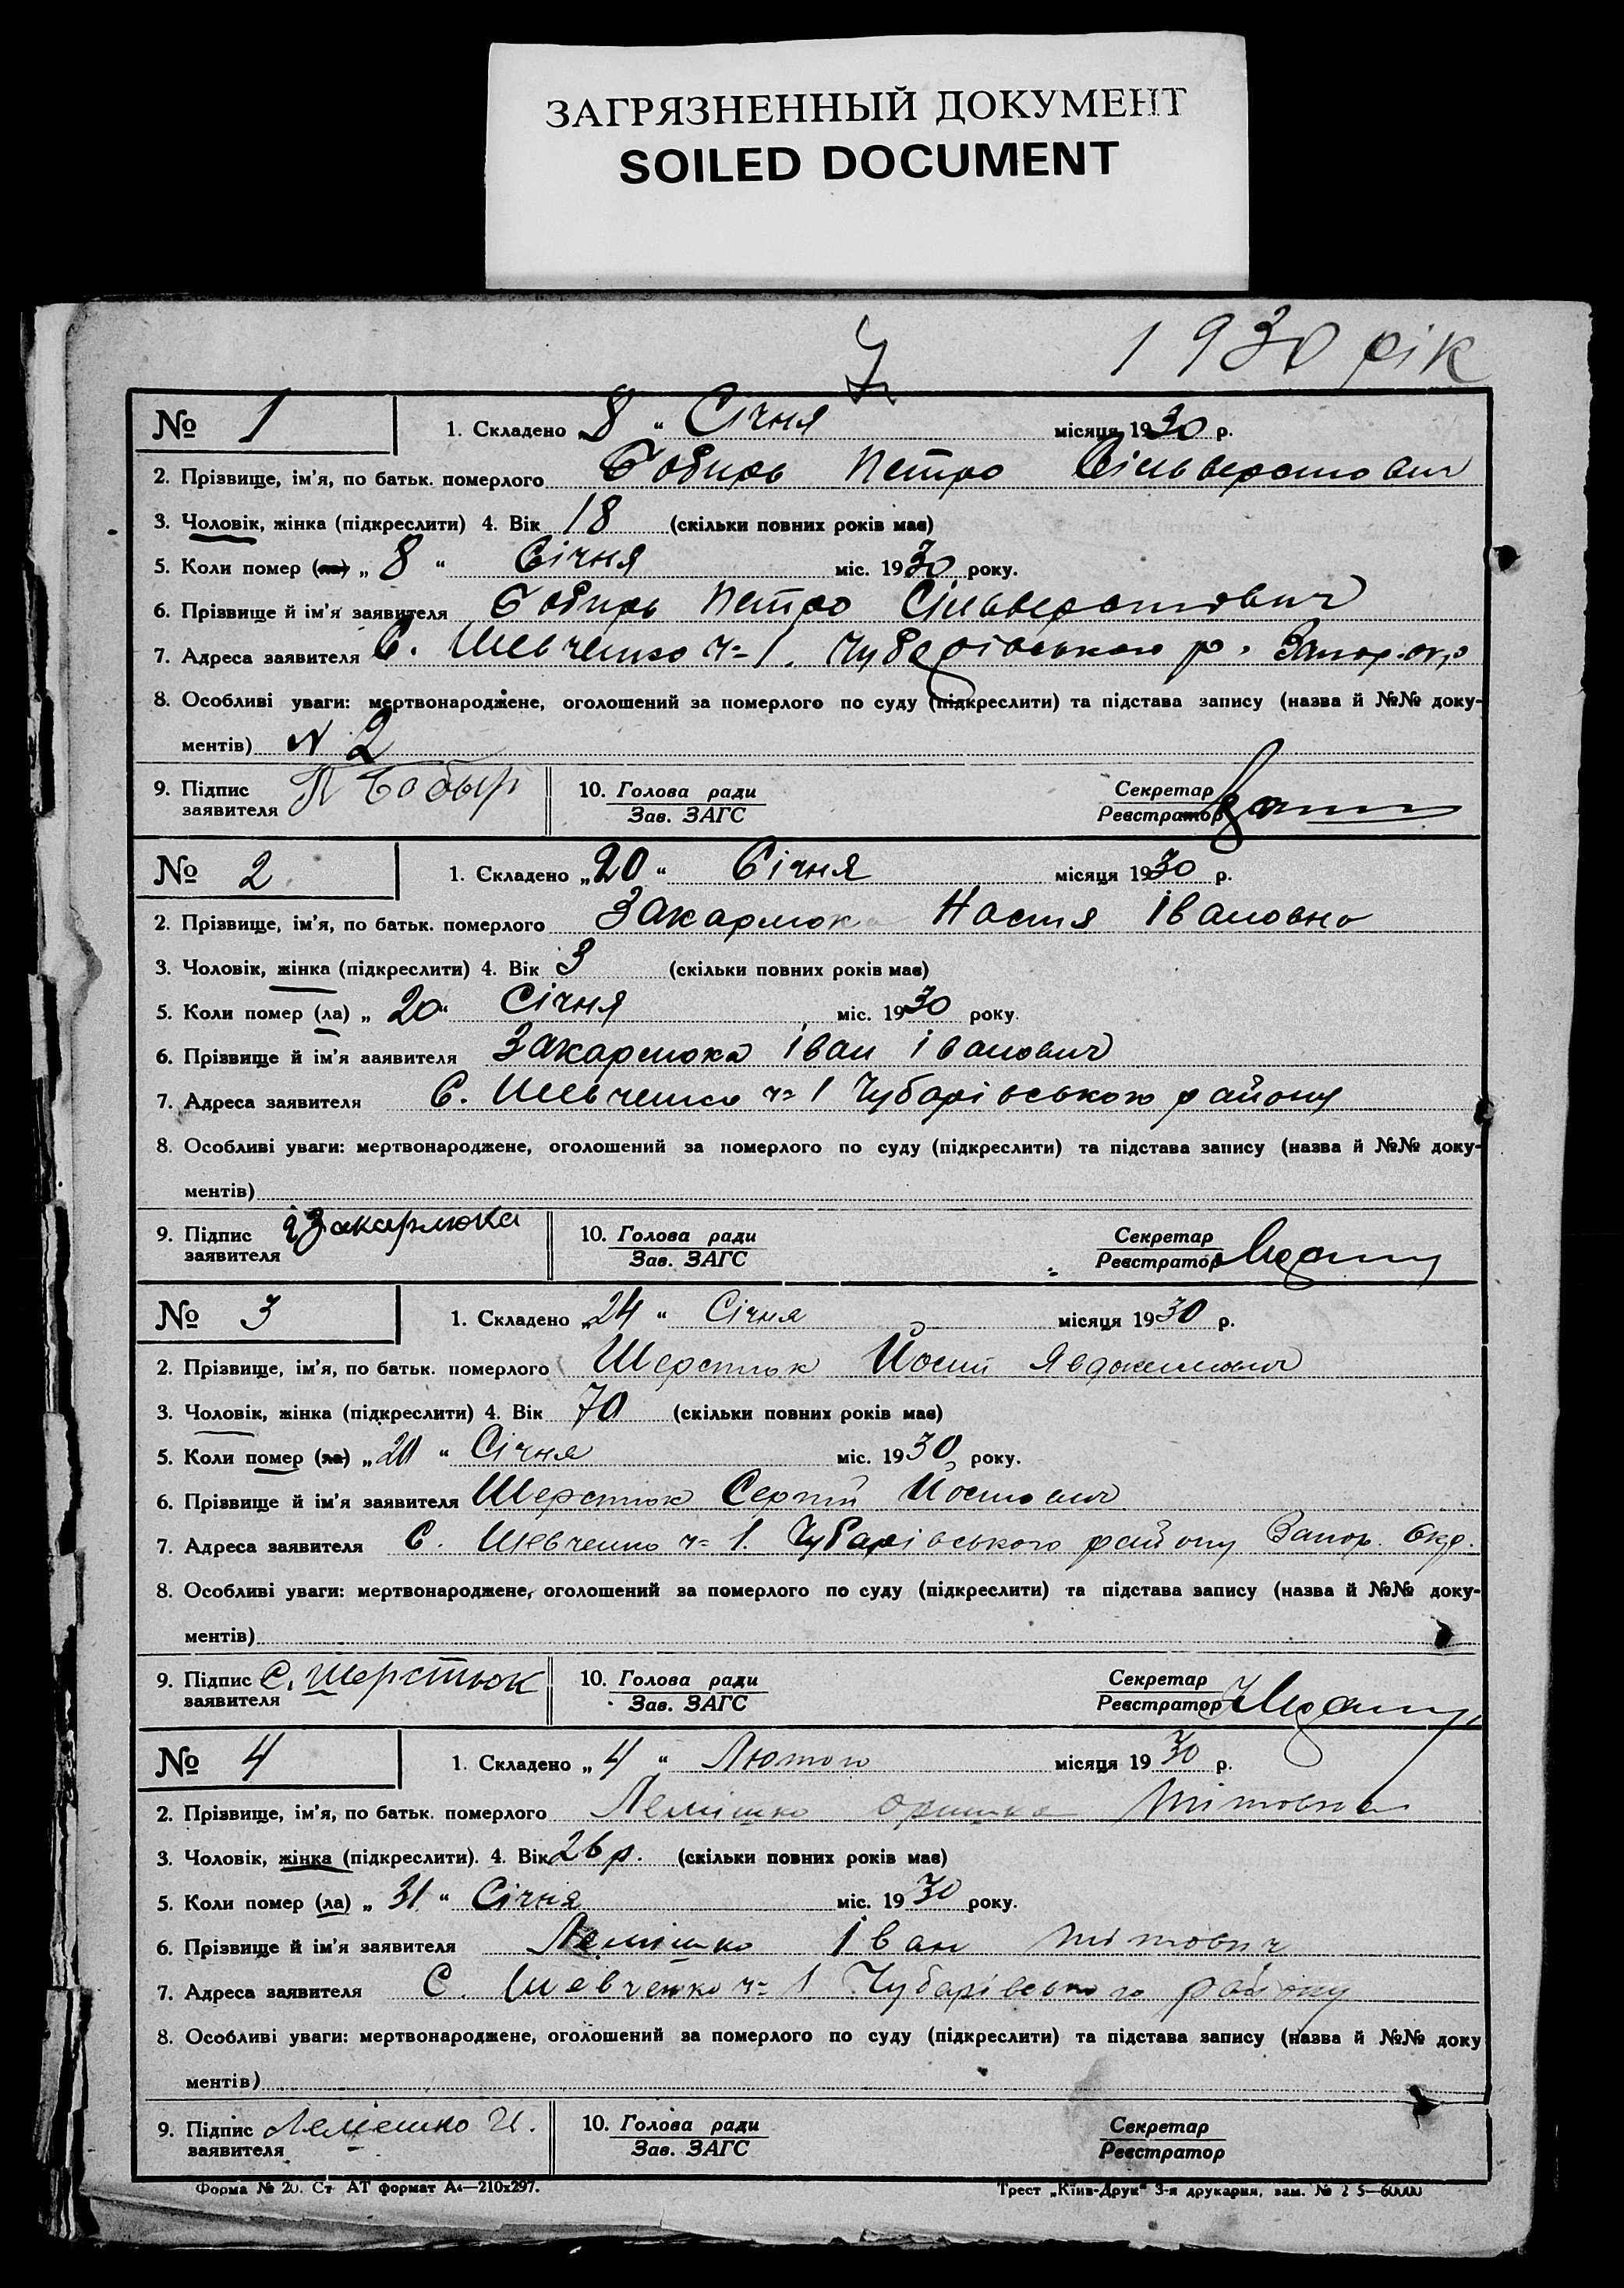 ЗАГРЯЗНЕННЫЙ ДОКУМЕНТ
SOILED DOCUMENT
1930 рік
№ 1 1. Складено „8“ Січня місяця 1930 р.
2. Прізвище, ім'я, по батьк. померлого Бобирь Петро Сільверстович
3. Чоловік, жінка (підкреслити) 4. Вік 18 (скільки повних років має)
5. Коли помер (ла) „8“ Січня міс. 1930 року.
6. Прізвище й ім'я заявителя Бобирь Петро Сільверстович
7. Адреса заявителя С. Шевченко ч-1. Чубарівського р. Запор. окр
8. Особливі уваги: мертвонароджене, оголошений за померлого по суду (підкреслити) та підстава запису (назва й №№ доку-
ментів) N 2
9. Підпис заявителя П Бобыр 10. Голова ради Зав. ЗАГС Секретар Реєстратор
№ 2 1. Складено „20“ Січня місяця 1930 р.
2. Прізвище, ім'я, по батьк. померлого Закарлюка Настя Івановна
3. Чоловік, жінка (підкреслити) 4. Вік 3 (скільки повних років має)
5. Коли помер (ла) „20“ Січня міс. 1930 року.
6. Прізвище й ім'я заявителя Закарлюка Іван Іванович
7. Адреса заявителя С. Шевченко ч-1 Чубарівського району
8. Особливі уваги: мертвонароджене, оголошений за померлого по суду (підкреслити) та підстава запису (назва й №№ доку-
ментів)
9. Підпис заявителя Закарлюка 10. Голова ради Зав. ЗАГС Секретар Реєстратор
№ 3 1. Складено „24“ Січня місяця 1930 р.
2. Прізвище, ім'я, по батьк. померлого Шерстюк Йосип Явдокимович
3. Чоловік, жінка (підкреслити) 4. Вік 70 (скільки повних років має)
5. Коли помер (ла) „20“ Січня міс. 1930 року.
6. Прізвище й ім'я заявителя Шерстюк Сергій Йосипович
7. Адреса заявителя С. Шевченко ч-1. Чубарівського району Запор. Окр.
8. Особливі уваги: мертвонароджене, оголошений за померлого по суду (підкреслити) та підстава запису (назва й №№ доку-
ментів)
9. Підпис заявителя С. Шерстюк 10. Голова ради Зав. ЗАГС Секретар Реєстратор
№ 4 1. Складено „4“ Лютого місяця 1930 р.
2. Прізвище, ім'я, по батьк. померлого Лемішко Оришка Тітовна
3. Чоловік, жінка (підкреслити). 4. Вік 26 р. (скільки повних років має)
5. Коли помер (ла) „31“ Січня міс. 1930 року.
6. Прізвище й ім'я заявителя Лемішко Іван Тітович
7. Адреса заявителя С. Шевченко ч-1 Чубарівського району
8. Особливі уваги: мертвонароджене, оголошений за померлого по суду (підкреслити) та підстава запису (назва й №№ доку
ментів)
9. Підпис заявителя Лемешко И. 10. Голова ради Зав. ЗАГС Секретар Реєстратор
Форма № 20. Ст АТ формат А4—210х297. Трест „Київ-Друк“ 3-я друкарня, зам. №